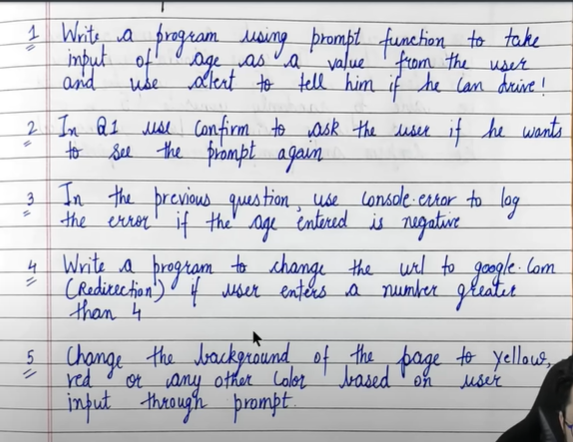 1 Write a program using prompt function to take
input of age as a value from the user
and use alert to tell him if he can drive!
2 In Q1 use confirm to ask the user if he wants
to see the prompt again
3 In the previous question, use console.error to log
the error if the age entered is negative
4 Write a program to change the url to google.com
(Redirection) if user enters a number greater
than 4
5 Change the background of the page to yellow,
red or any other color based on user
input through prompt.